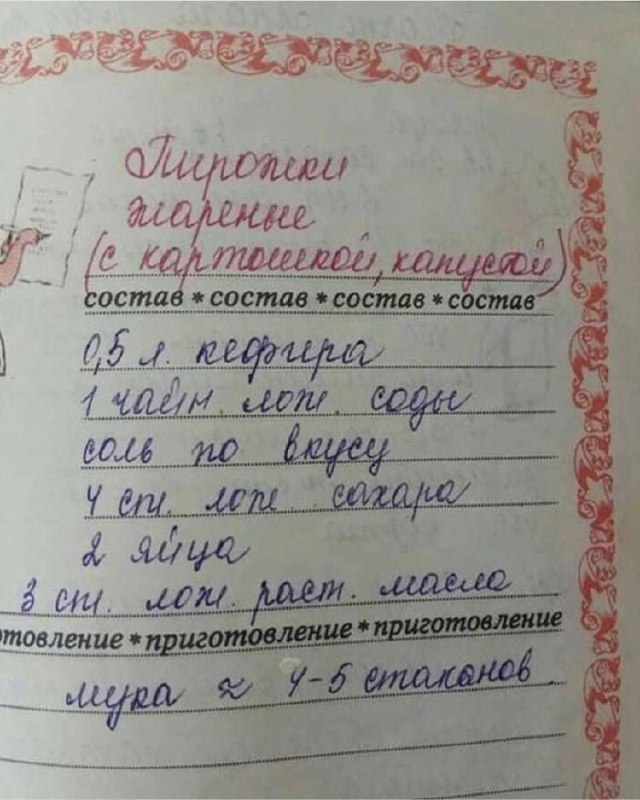 Пирожки
жареные
(с картошкой, капустой)
состав * состав * состав * состав
0,5 л. кефира
1 чайн. лож. соды
соль по вкусу
4 ст. лож сахара
2 яйца
3 ст. лож. раст. масла
отовление * приготовление * приготовление
мука ≈ 4-5 стаканов